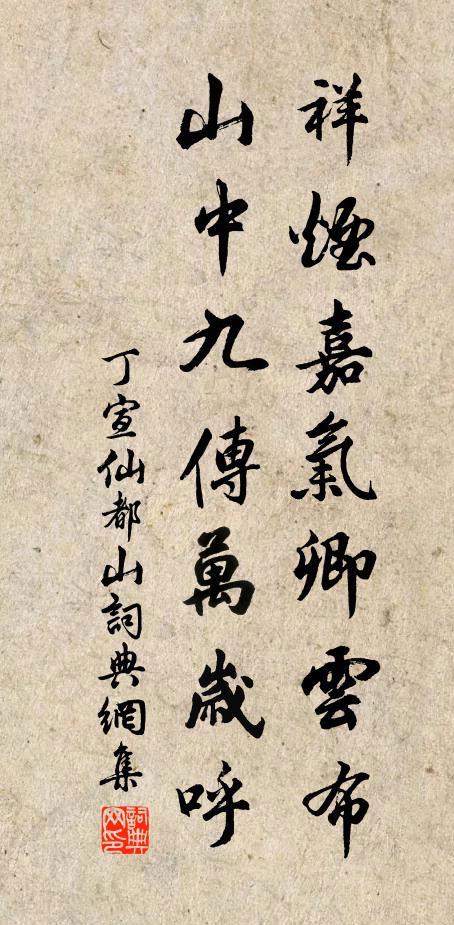 祥煙嘉氣卿雲布
山中九傳萬歲呼
丁宣仙都山詞典網集
詞典网印